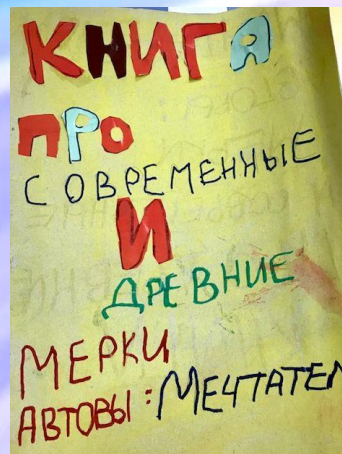 КНИГА
ПРО
СОВРЕМЕННЫЕ
И
ДРЕВНИЕ
МЕРКИ
АВТОВЫ: МЕЧТАТЕЛ